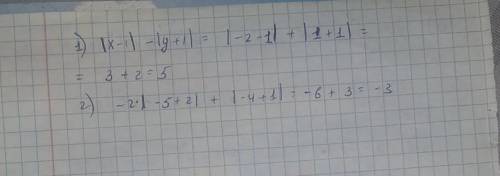 1) |x-1| - |y+1| = |-2-1| + |1+1| =
= 3+2=5
2) -2·|-5+2| + |-4+1| = -6+3 = -3